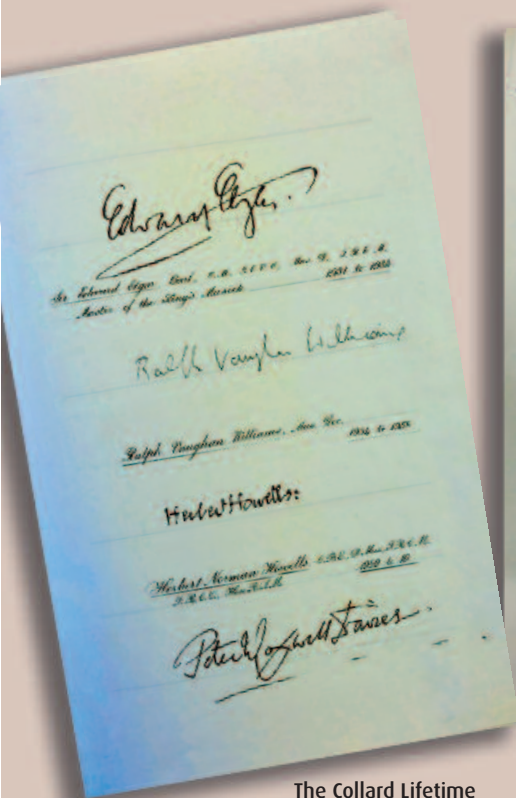 Edward Elgar.
Sir Edward Elgar Bart. O.M.
Master of the King's Musick 1931 to 1934
Ralph Vaughan Williams
Ralph Vaughan Williams, 1934 to
Herbert Howells:
Herbert Norman Howells 1959 to
Peter Maxwell Davies
The Collard Lifetime